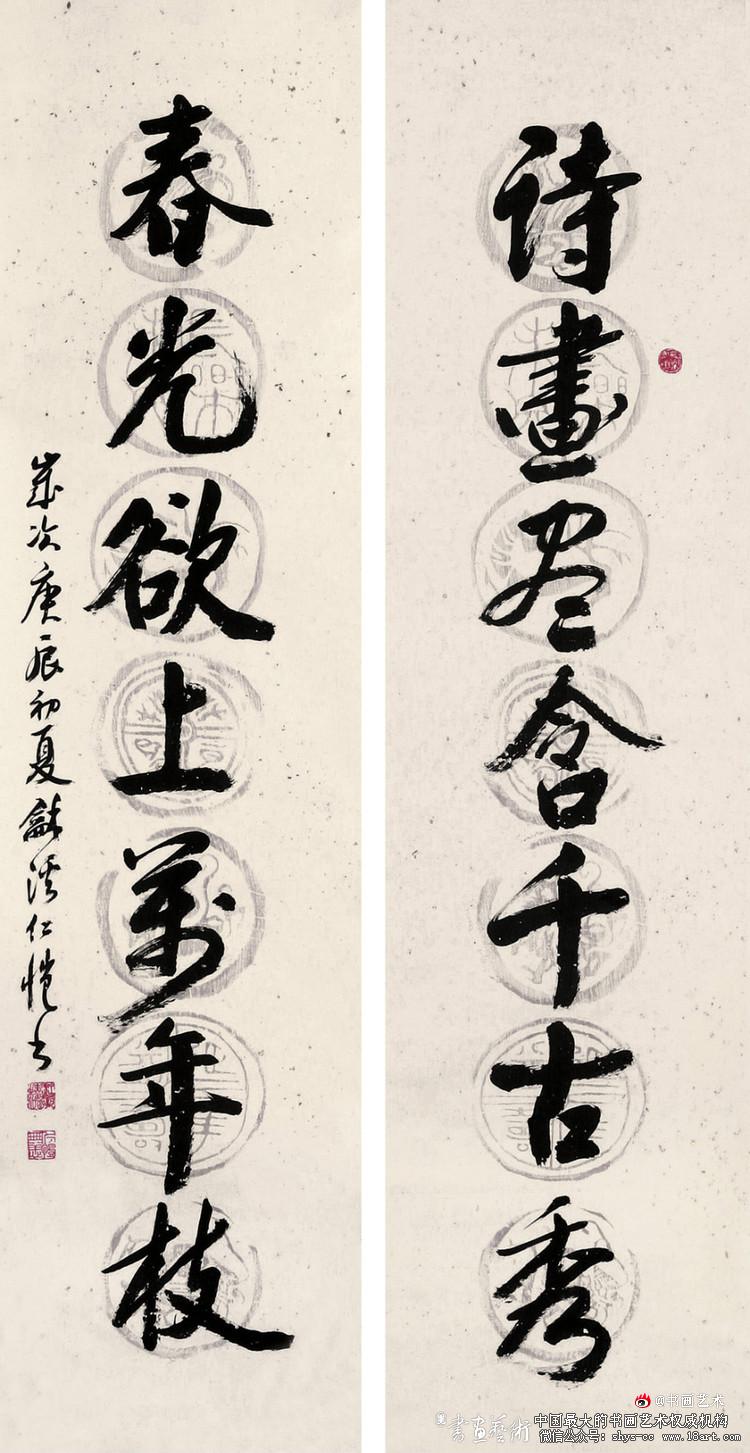 诗畫尽含千古秀
春光欲上萬年枝
歲次庚辰初夏龢溪仁愷书
@书画艺术
書画藝術
中国最大的书画艺术权威机构
微信公众号: shys-cc www.18art.com